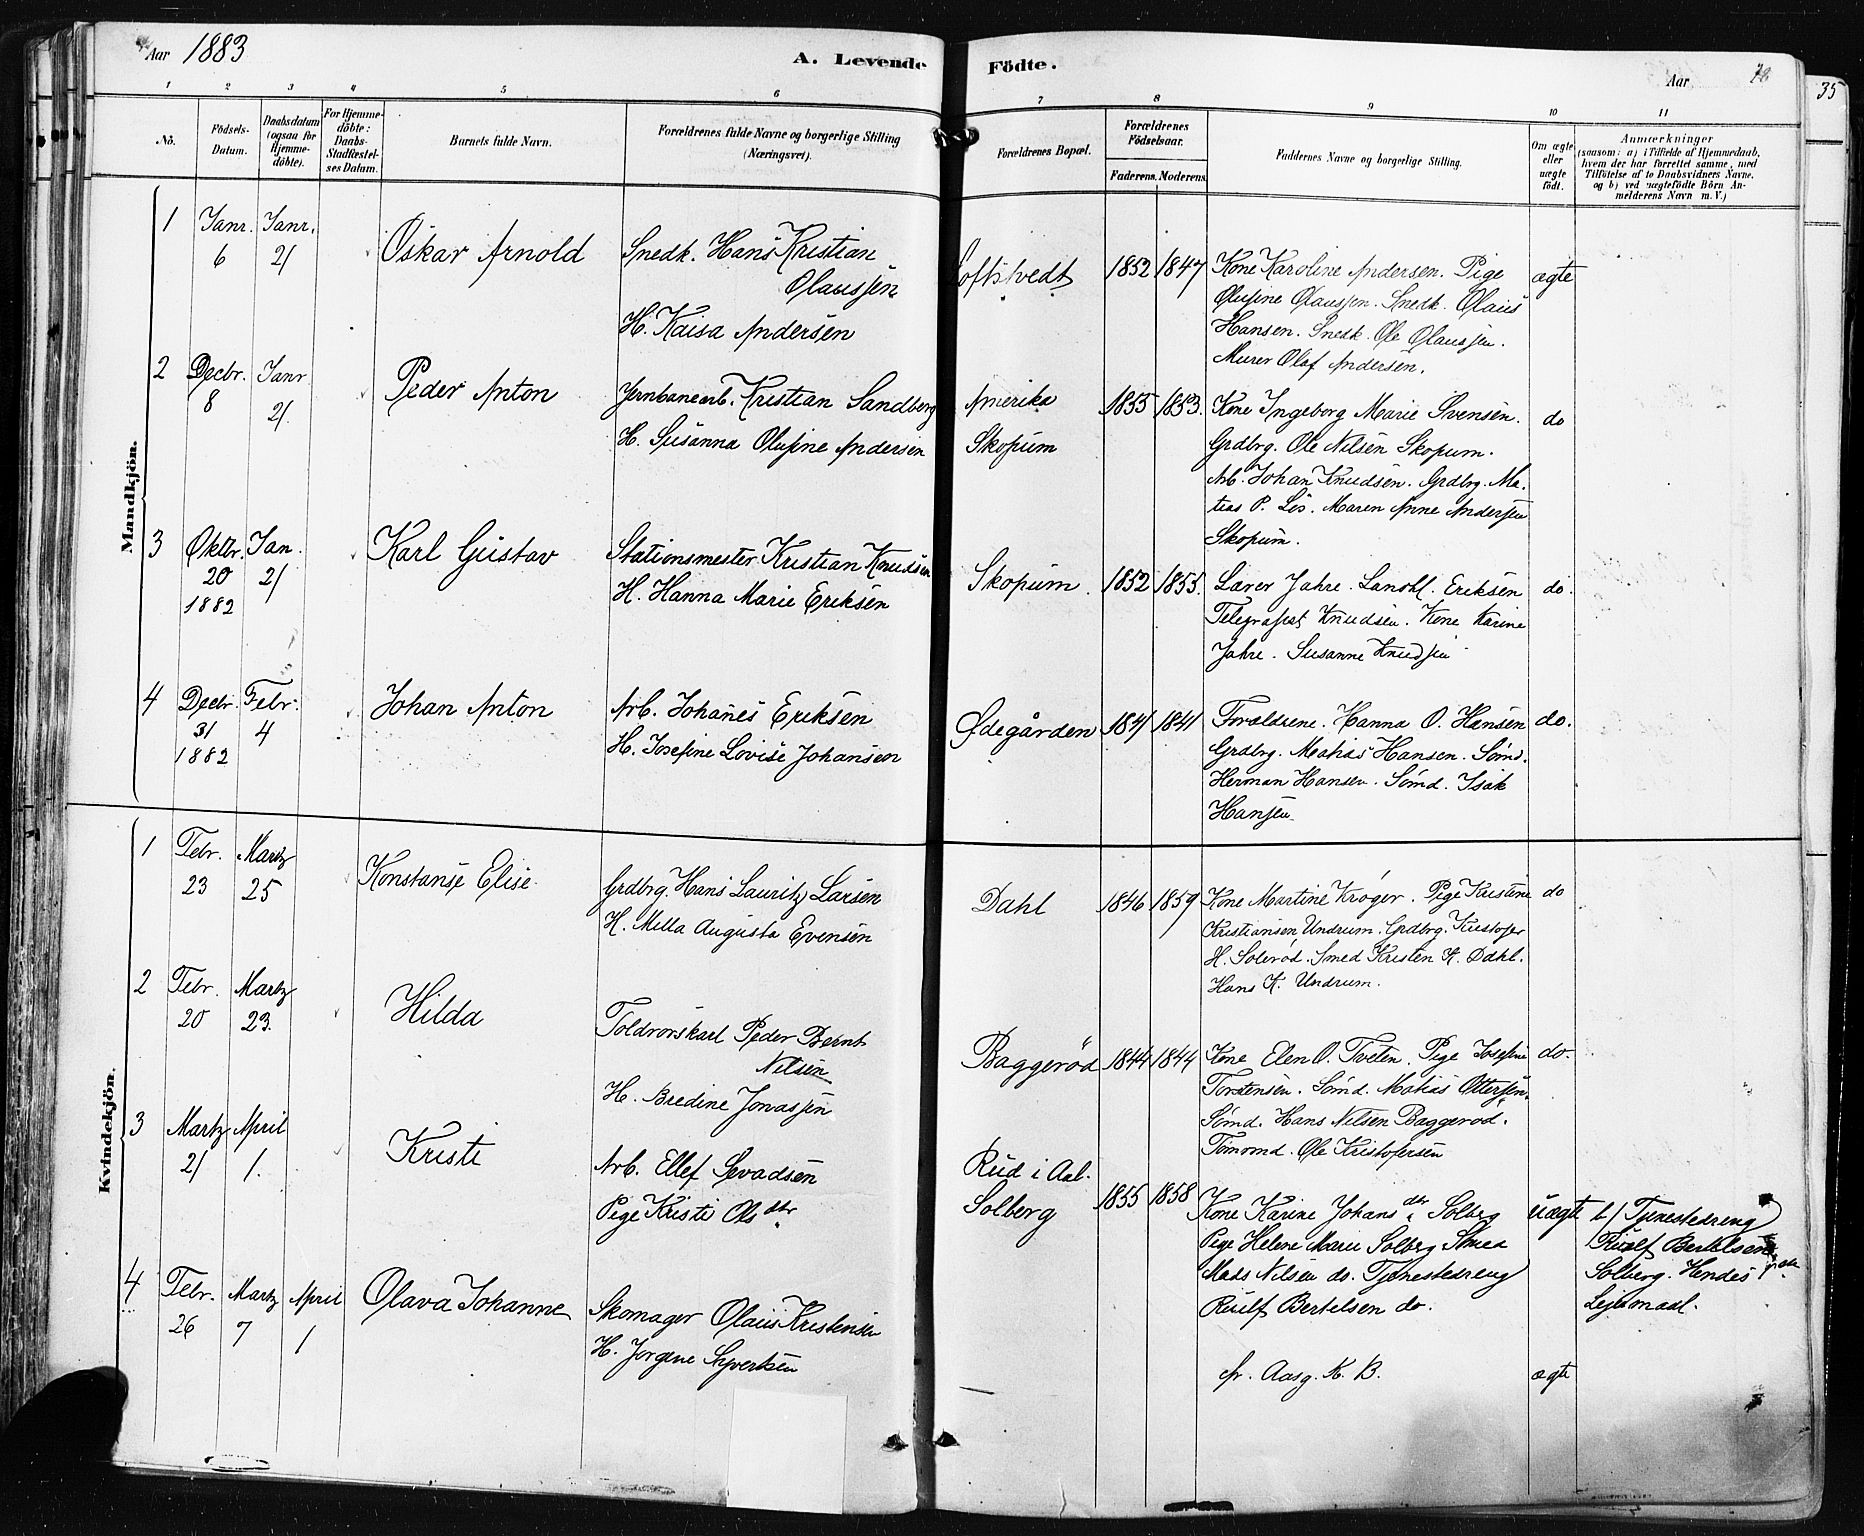 Aar 1883
A. Levende Födte.
Aar 78
35
1 2 3 4 5 6 7 8 9 10 11
No.
Födsels-Datum.
Daabsdatum (ogsaa for Hjemme-döbte).
For Hjemme-döbte: Daabs-Stadfæstel-ses Datum.
Barnets fulde Navn.
Forældrenes fulde Navne og borgerlige Stilling (Næringsvei).
Forældrenes Bopæl.
Forældrenes Födselsaar.
Faderens. Moderens.
Faddernes Navne og borgerlige Stilling.
Om ægte eller uægte födt.
Anmærkninger
(saasom: a) i Tilfælde af Hjemmedaab,
hvem der har forrettet samme, med
Tilföielse af to Daabsvidners Navne,
og b) ved uægtefödte Börn An-
melderens Navn m. V.)
Mandkjön.
1 Janr. 6 Janr. 21 Oskar Arnold
Snedk. Hans Kristian
Olaussen
H. Kaisa Andersen
Loftstvedt 1852 1847
Kone Karoline Andersen. Pige
Olufine Olaussen. Snedk. Olaus
Hansen. Snedk. Ole Olaussen.
Murer Olaf Andersen.
ægte
2 Decbr. 8 Janr 21. Peder Anton
Jernbanearb. Kristian Sandberg
H. Susanna Olufine Andersen
Amerika
Skopum
1855 1853.
Kone Ingeborg Marie Svensen.
Grdbrg. Ole Nilsen Skopum.
Arb. Johan Knudsen. Grdbrg. Ma-
tias P. Løs. Maren Anne Andersen
Skopum.
do
3 Oktbr. 20 1882 Jan. 21 Karl Gustav
Stationsmester Kristian Knudsen
H. Hanna Marie Eriksen
Skopum. 1852 1855.
Lærer Jahre. Landhl. Eriksen
Telegrafist Knudsen. Kone Karine
Jahre. Susanne Knudsen
do.
4 Decbr. 31 1882 Febr. 4 Johan Anton
Arb. Johanes Eriksen
H. Josefine Lovise Johansen
Ødegården 1841 1841
Forældrene. Hanna O. Hansen
Grdbrg. Matias Hansen. Sømd.
Herman Hansen. Sømd. Isak
Hansen
do.
Kvindekjön.
1 Febr. 23 Martz 25 Konstanse Elise
Grdbrg. Hans Lauritz Larsen
H. Milla Augusta Evensen
Dahl 1846 1859
Kone Martine Krøger. Pige Kristine
Kristiansen Undrum. Grdbrg. Kristofer
H. Solerød. Smed Kristen K. Dahl.
Hans K. Undrum.
do
2 Febr. 20 Martz 23. Hilda
Toldrorskarl Peder Bernt
Nilsen
H. Bredine Jonassen
Baggerød 1844 1844
Kone Elen O. Tveten. Pige Josefine
Torstensen. Sømd. Matias Ottersen.
Sømd. Hans Nilsen Baggerød.
Tømmd. Ole Kristofersen
do.
3 Martz 21 April 1. Kristi
Arb. Ellef Sevadsen
Pige Kristi Olsdtr.
Rud i Aal.
Solberg
1855 1858
Kone Karine Johansdtr. Solberg
Pige Helene Marie Solberg Smed
Mads Nilsen do. Tjenestedreng
Rulf Bertelsen do.
uægte
b/ Tjenestedreng
Rulf Bertelsen
Solberg. Hendes 1ste
Leiermaal.
4 Febr. 26 Martz 7 April 1 Olava Johanne
Skomager Olaus Kristensen
H. Jorgine Syvertsen
fr. Aasg. K. B.
ægte